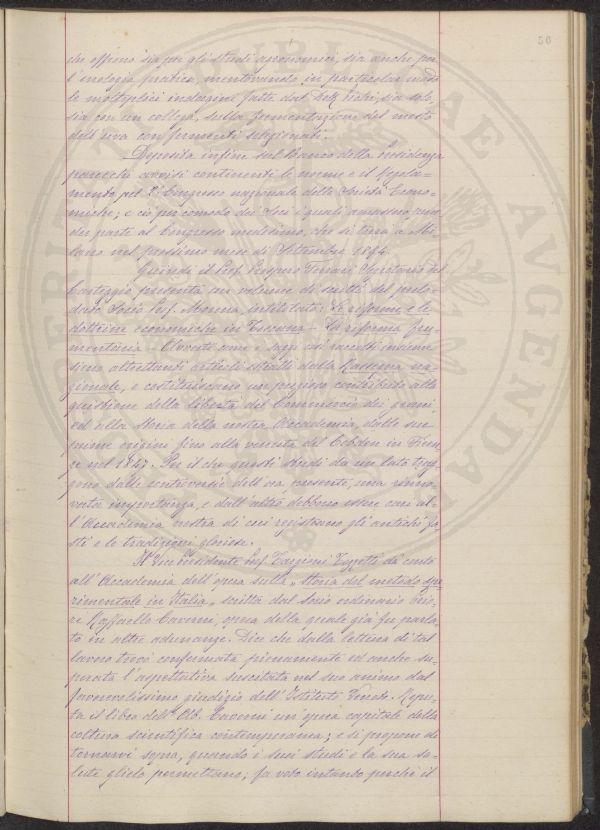 56
che offrono sia per gli studi agronomici, sia anche per
l'enologia pratica, mentovando in particolar modo
le molteplici indagini fatte dal Dott. sia solo,
sia con un collega, sulla fermentazione del mosto
dell'uva con fermenti selezionati.
Deposita infine sul Banco della Presidenza
parecchi avvisi continenti le norme e il Regola-
mento pel 1° Congresso nazionale delle Società Econo-
miche; e ciò per comodo dei Soci i quali amassero pren-
der parte al Congresso medesimo, che si terrà a Mi-
lano nel prossimo mese di Settembre 1894.
Quindi il Prof. Prospero Ferrari Segretario del
Carteggio presenta un volume di scritti del prelo-
dato Socio Prof. Morena, intitolati: Le riforme e le
dottrine economiche in Toscana - La riforma fru-
mentaria - Questi come i saggi più recenti insieme
sono altrettanti articoli estratti dalla Rassegna na-
zionale, e costituiscono un prezioso contributo alla
questione della libertà del Commercio dei grani,
ed alla storia della nostra Accademia, dalle sue
prime origini fino alla venuta del Cobden in Firen-
ze nel 1847. Per il che questi studi da un lato trag-
gono dalle controversie dell'ora presente, una rinno-
vata importanza, e dall'altro debbono essere cari al-
l'Accademia nostra di cui registrano gli antichi fa-
sti e le tradizioni gloriose.
Il Vice Presidente Prof. Targioni Tozzetti dà conto
all'Accademia dell'opera sulla „Storia del metodo spe-
rimentale in Italia„ scritta dal Socio ordinario
Raffaello Caverni, opera della quale già fu parla-
to in altre adunanze. Dice che dalla lettura di tal
lavoro trovò confermata pienamente ed anche su-
perata l'aspettativa suscitata nel suo animo dal
favorevolissimo giudizio dell'Istituto Veneto. Repu-
ta il libro dell'Ab. Caverni un'opera capitale della
coltura scientifica contemporanea; e si propone di
tornarvi sopra, quando i suoi studi e la sua sa-
lute glielo permettano; fa voto intanto perchè il